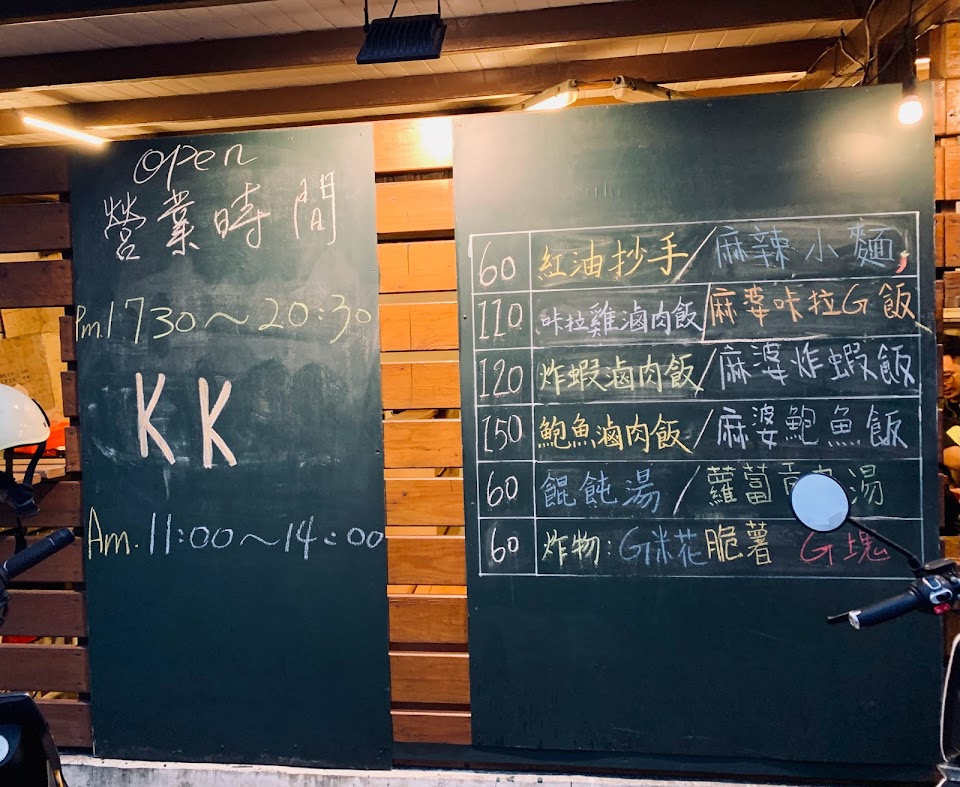 open
營業時間
Pm.1730～20:30
KK
Am.11:00～14:00
60 紅油抄手/麻辣小麵
110 咔拉雞滷肉飯/麻婆咔拉G飯
120 炸蝦滷肉飯/麻婆炸蝦飯
150 鮑魚滷肉飯/麻婆鮑魚飯
60 餛飩湯/蘿蔔 湯
60 炸物:G米花脆薯 G塊